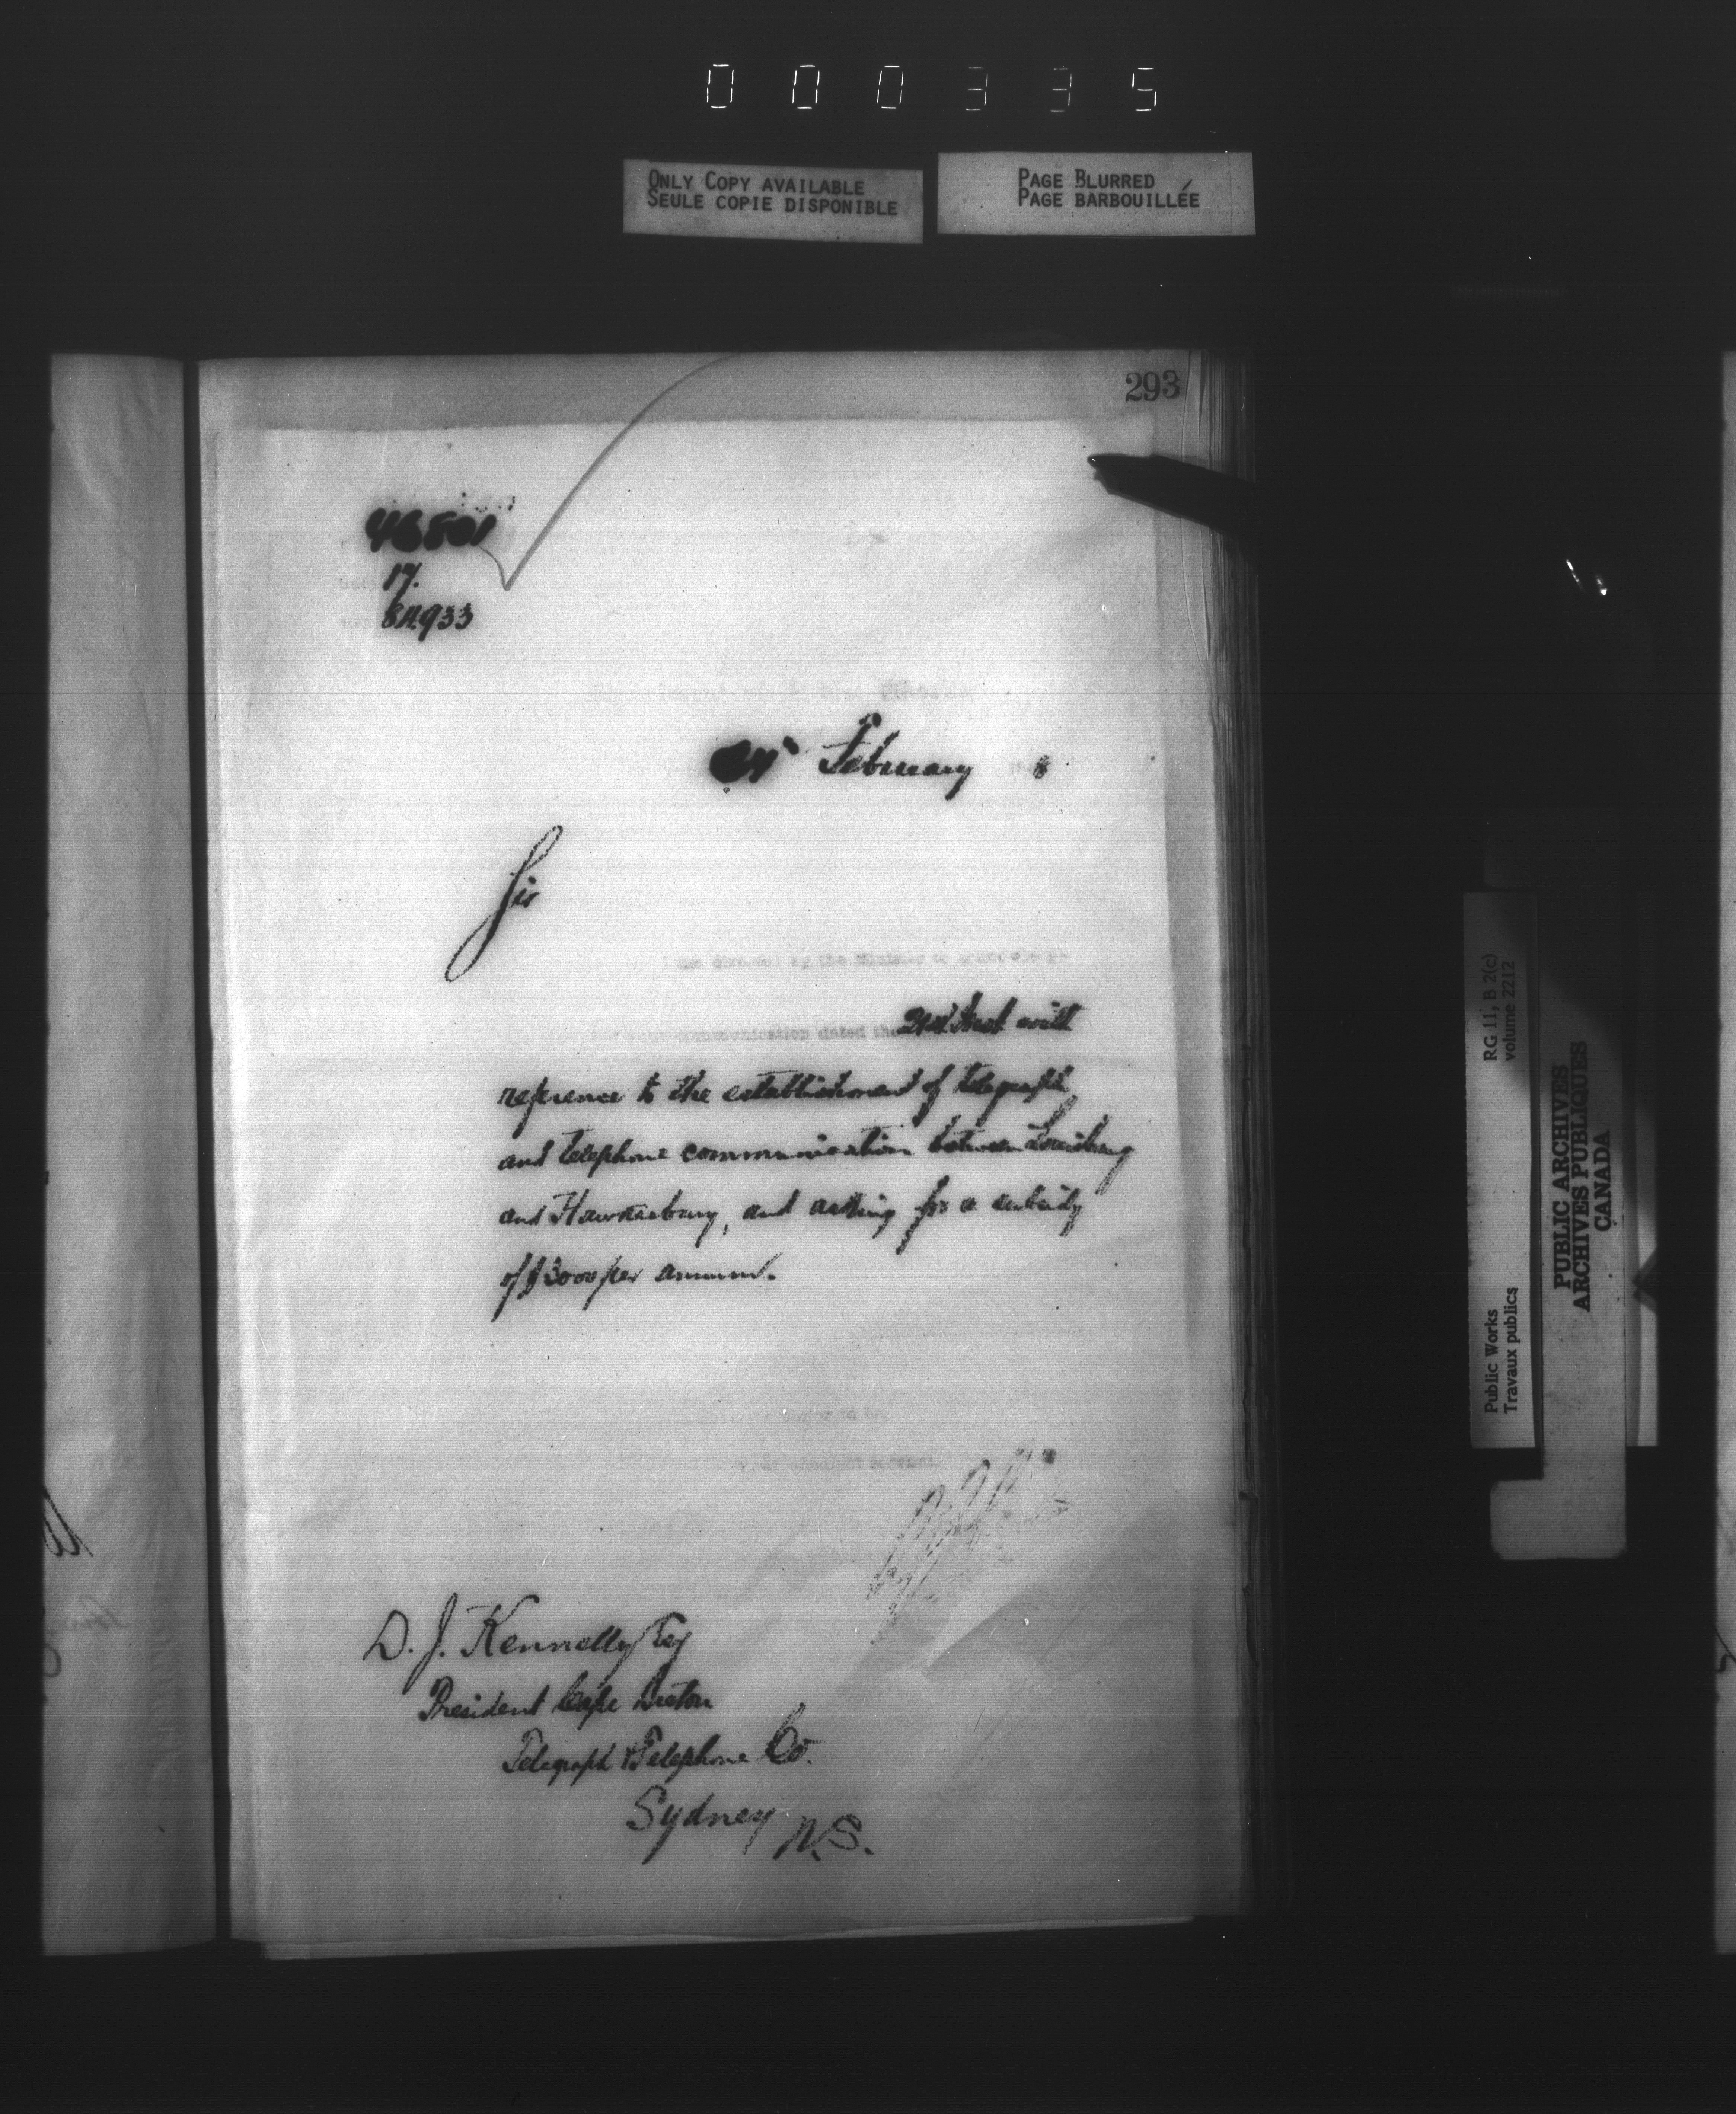 000335
ONLY COPY AVAILABLE
SEULE COPIE DISPONIBLE
PAGE BLURRED
PAGE BARBOUILLÉE
293
46801
17.
84933
February 8
Sir
I am directed by the Minister to acknowledge
communication dated the 21st Inst with
reference to the establishment of telegraph
and telephone communication between Louisburg
and Hawkesbury, and asking for a subsidy
of $3000 per annum.
honor to be,
Your obedient servant
D. J. Kennelly Esq
President Cape Breton
Telegraph & Telephone Co.
Sydney N.S.
Public Works
Travaux publics
RG 11, B 2(c)
volume 2212
PUBLIC ARCHIVES
ARCHIVES PUBLIQUES
CANADA